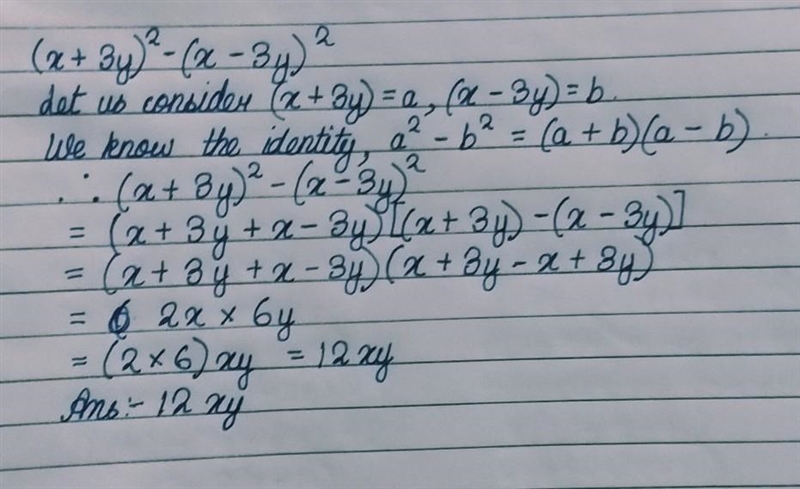 (x + 3y)² - (x - 3y)²
Let us consider (x + 3y) = a, (x - 3y) = b.
We know the identity, a² - b² = (a + b)(a - b).
∴ (x + 3y)² - (x - 3y)²
= (x + 3y + x - 3y)[(x + 3y) - (x - 3y)]
= (x + 3y + x - 3y)(x + 3y - x + 3y)
= 2x × 6y
= (2 × 6) xy = 12 xy
Ans:- 12 xy